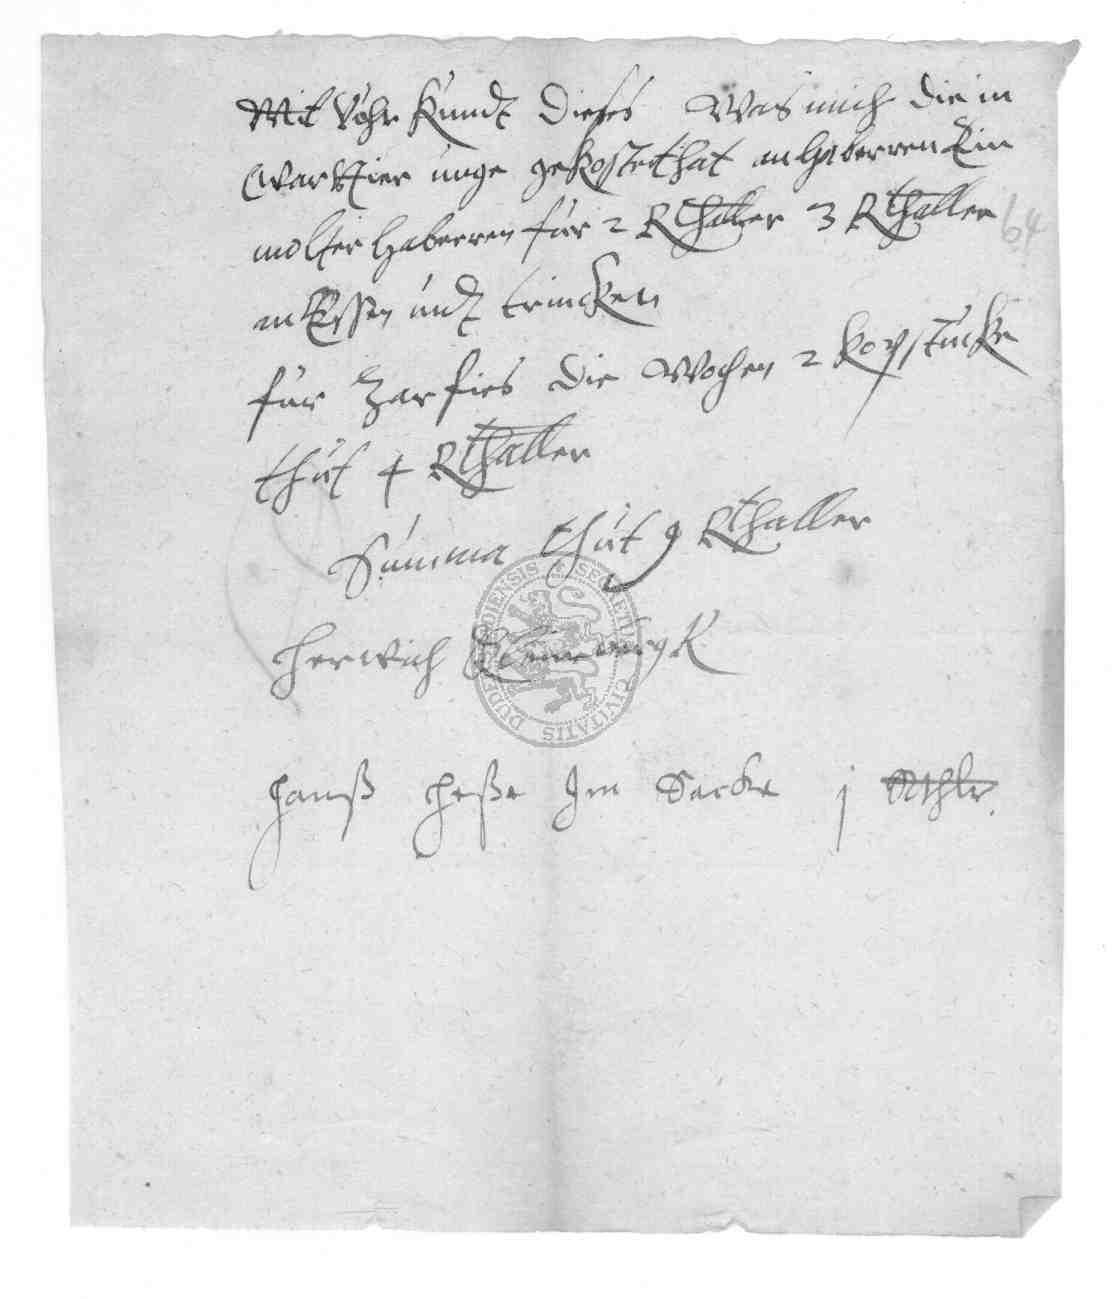 Mit Vhr Kundt dieses Was mich die in
qwarttier unge gekostet hat an haberren Ein
molter haberren für 2 Rthaller 3 Rthaller
64
an Essen undt trincken
für Zarfies die Wochen 2 Kopstücke
thut 4 Rthaller
Summa thut 9 Rthaller
herwich
hanß heße Im Sacke j Rthlr
DUDE SIGILLUM CIVITATIS